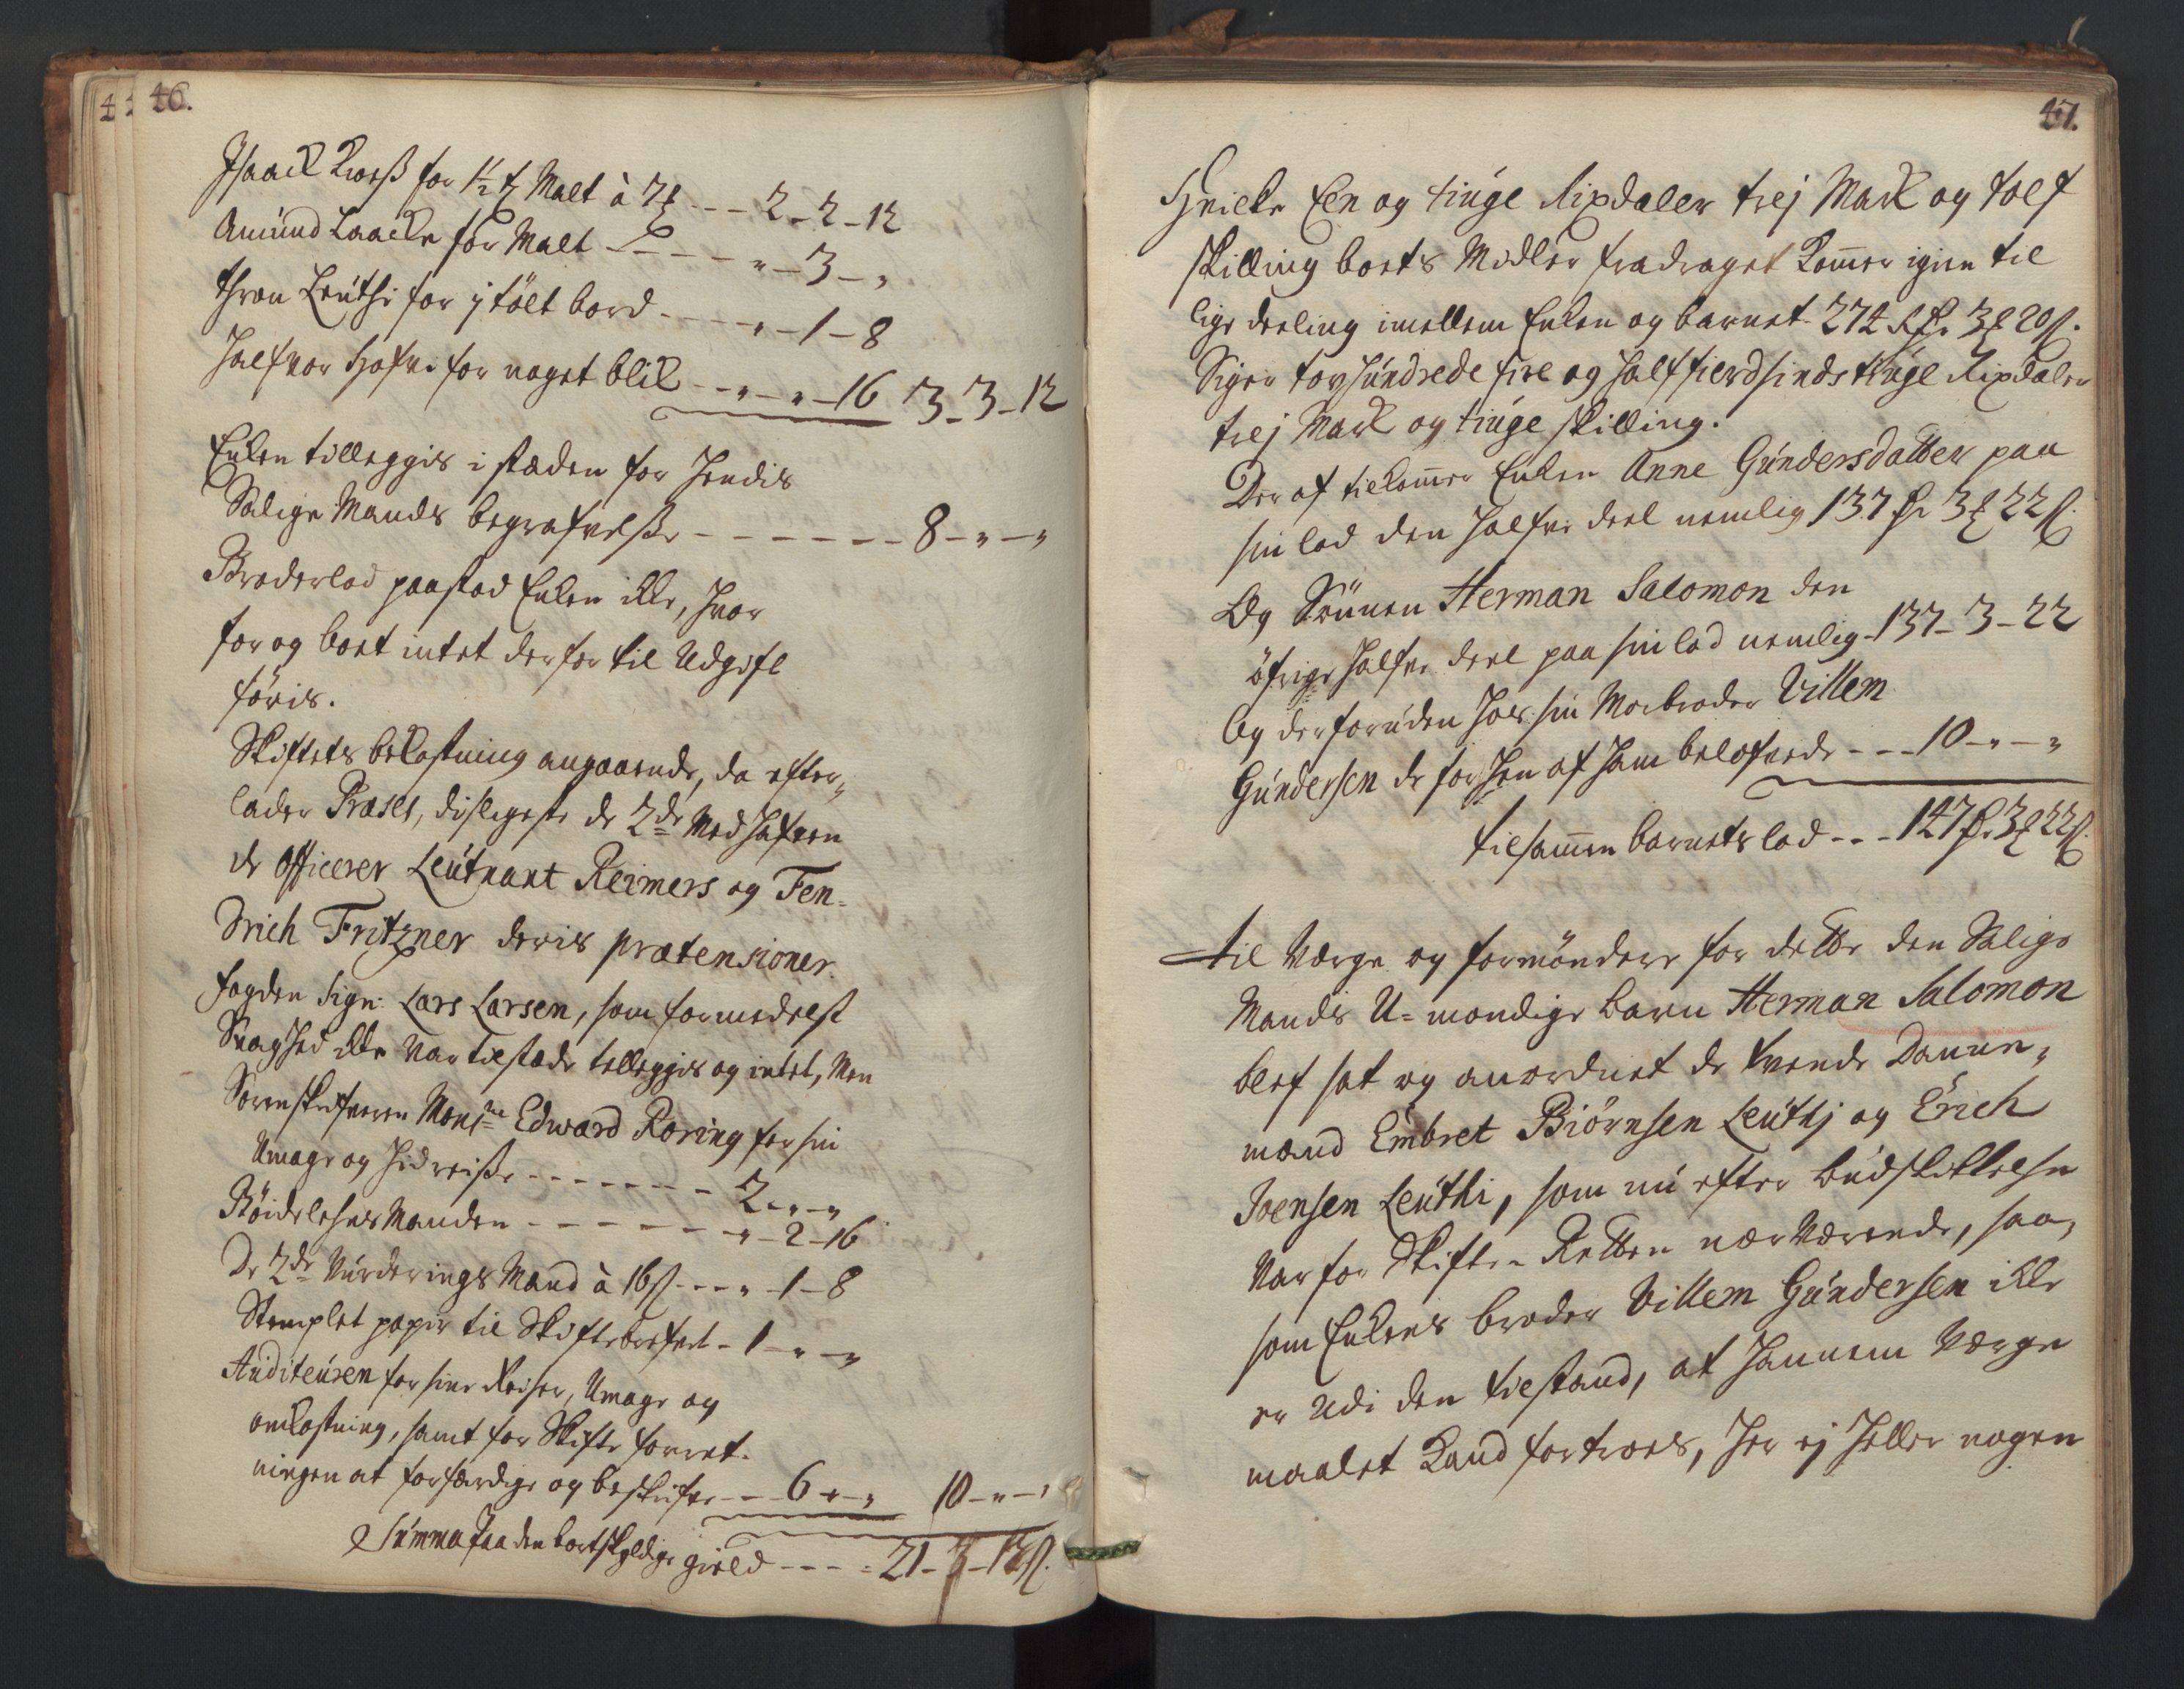 46.
Isaack Kroeß for 1½ tt Malt à 7 ---- 2-2-12
Amund Laacke for Malt ------ "-3-"
thron Leuthi for j tölt bord ----- "-1-8
Halfvor Hofve for noget blik --"-"-16 3-3-12
Enken tilleggis i stæden for hendis
Salige Mands begrafvelße ------- 8-"-"
Broderlod paastod Enken icke, hvor
for og boet intet derfor til Udgift
föris.
Skiftets bekostning angaaende, da efter„
lader Præses, disligeste de 2de Medhafven
de Officerer Leutnant Reimers og Fen-
drich Fritzner deris prætensioner.
fogden Sign: Lars Larsen, som formedelst
Svaghed icke var tilstæde tilleggis og intet, Men
Sorenskrifveren Monsr Edward Röring for sin
Umage og hidreiße ------- 2-"-"
Böidelehns Manden ------- "-2-16
De 2de Vurderings Mænd à 16 ß ---- "-1-8
Stemplet papir til Skiftebrefvet - 1-"-"
Auditeuren for sine Reiser, Umage og
omkostning, samt for Skifte forret-
ningen at forfærdige og beskrifve --- 6-"-" 10-"-"
Summa paa den bortskyldige gield ----- 21-3-12 ß.
47.
Hvilke Een og tiuge Rixdaler trej Mark og tolf
skilling boets Midler fradraget kommer igien til
lige deeling imellem Enken og barnet 274 Rdr 3 20 ß.
Siger tovhundrede fire og halffierdsindstiuge Rixdaler
trej Mark og tiuge skilling.
Der af tilkommer Enken Anne Gundersdatter paa
sin lod den halfve deel nemlig 137 dr 3 22 ß.
Og Sönnen Herman Salomon den
öfrige halfve deel paa sin lod nemlig - 137-3-22
Og derforuden hos sin Morbroder Villem
Gundersen de for hen af ham belofvede --- 10-"-"
tilsammen barnets lod --- 147 dr 3 22 ß.
til Værge og formöndere for dette den Salige
Mands U-mondige barn Herman Salomon
blef sat og anordnet de tvende Danne„
mænd Embret Biörnsen Leuthj og Erich
Joensen Leuthi, som nu efter budskikkelse
var for Skifte-Retten nærværende, saa„
som Enkens broder Villem Gundersen icke
er udi den tilstand, at hannem Værge
maalet kand fortroes, her ej heller nogen